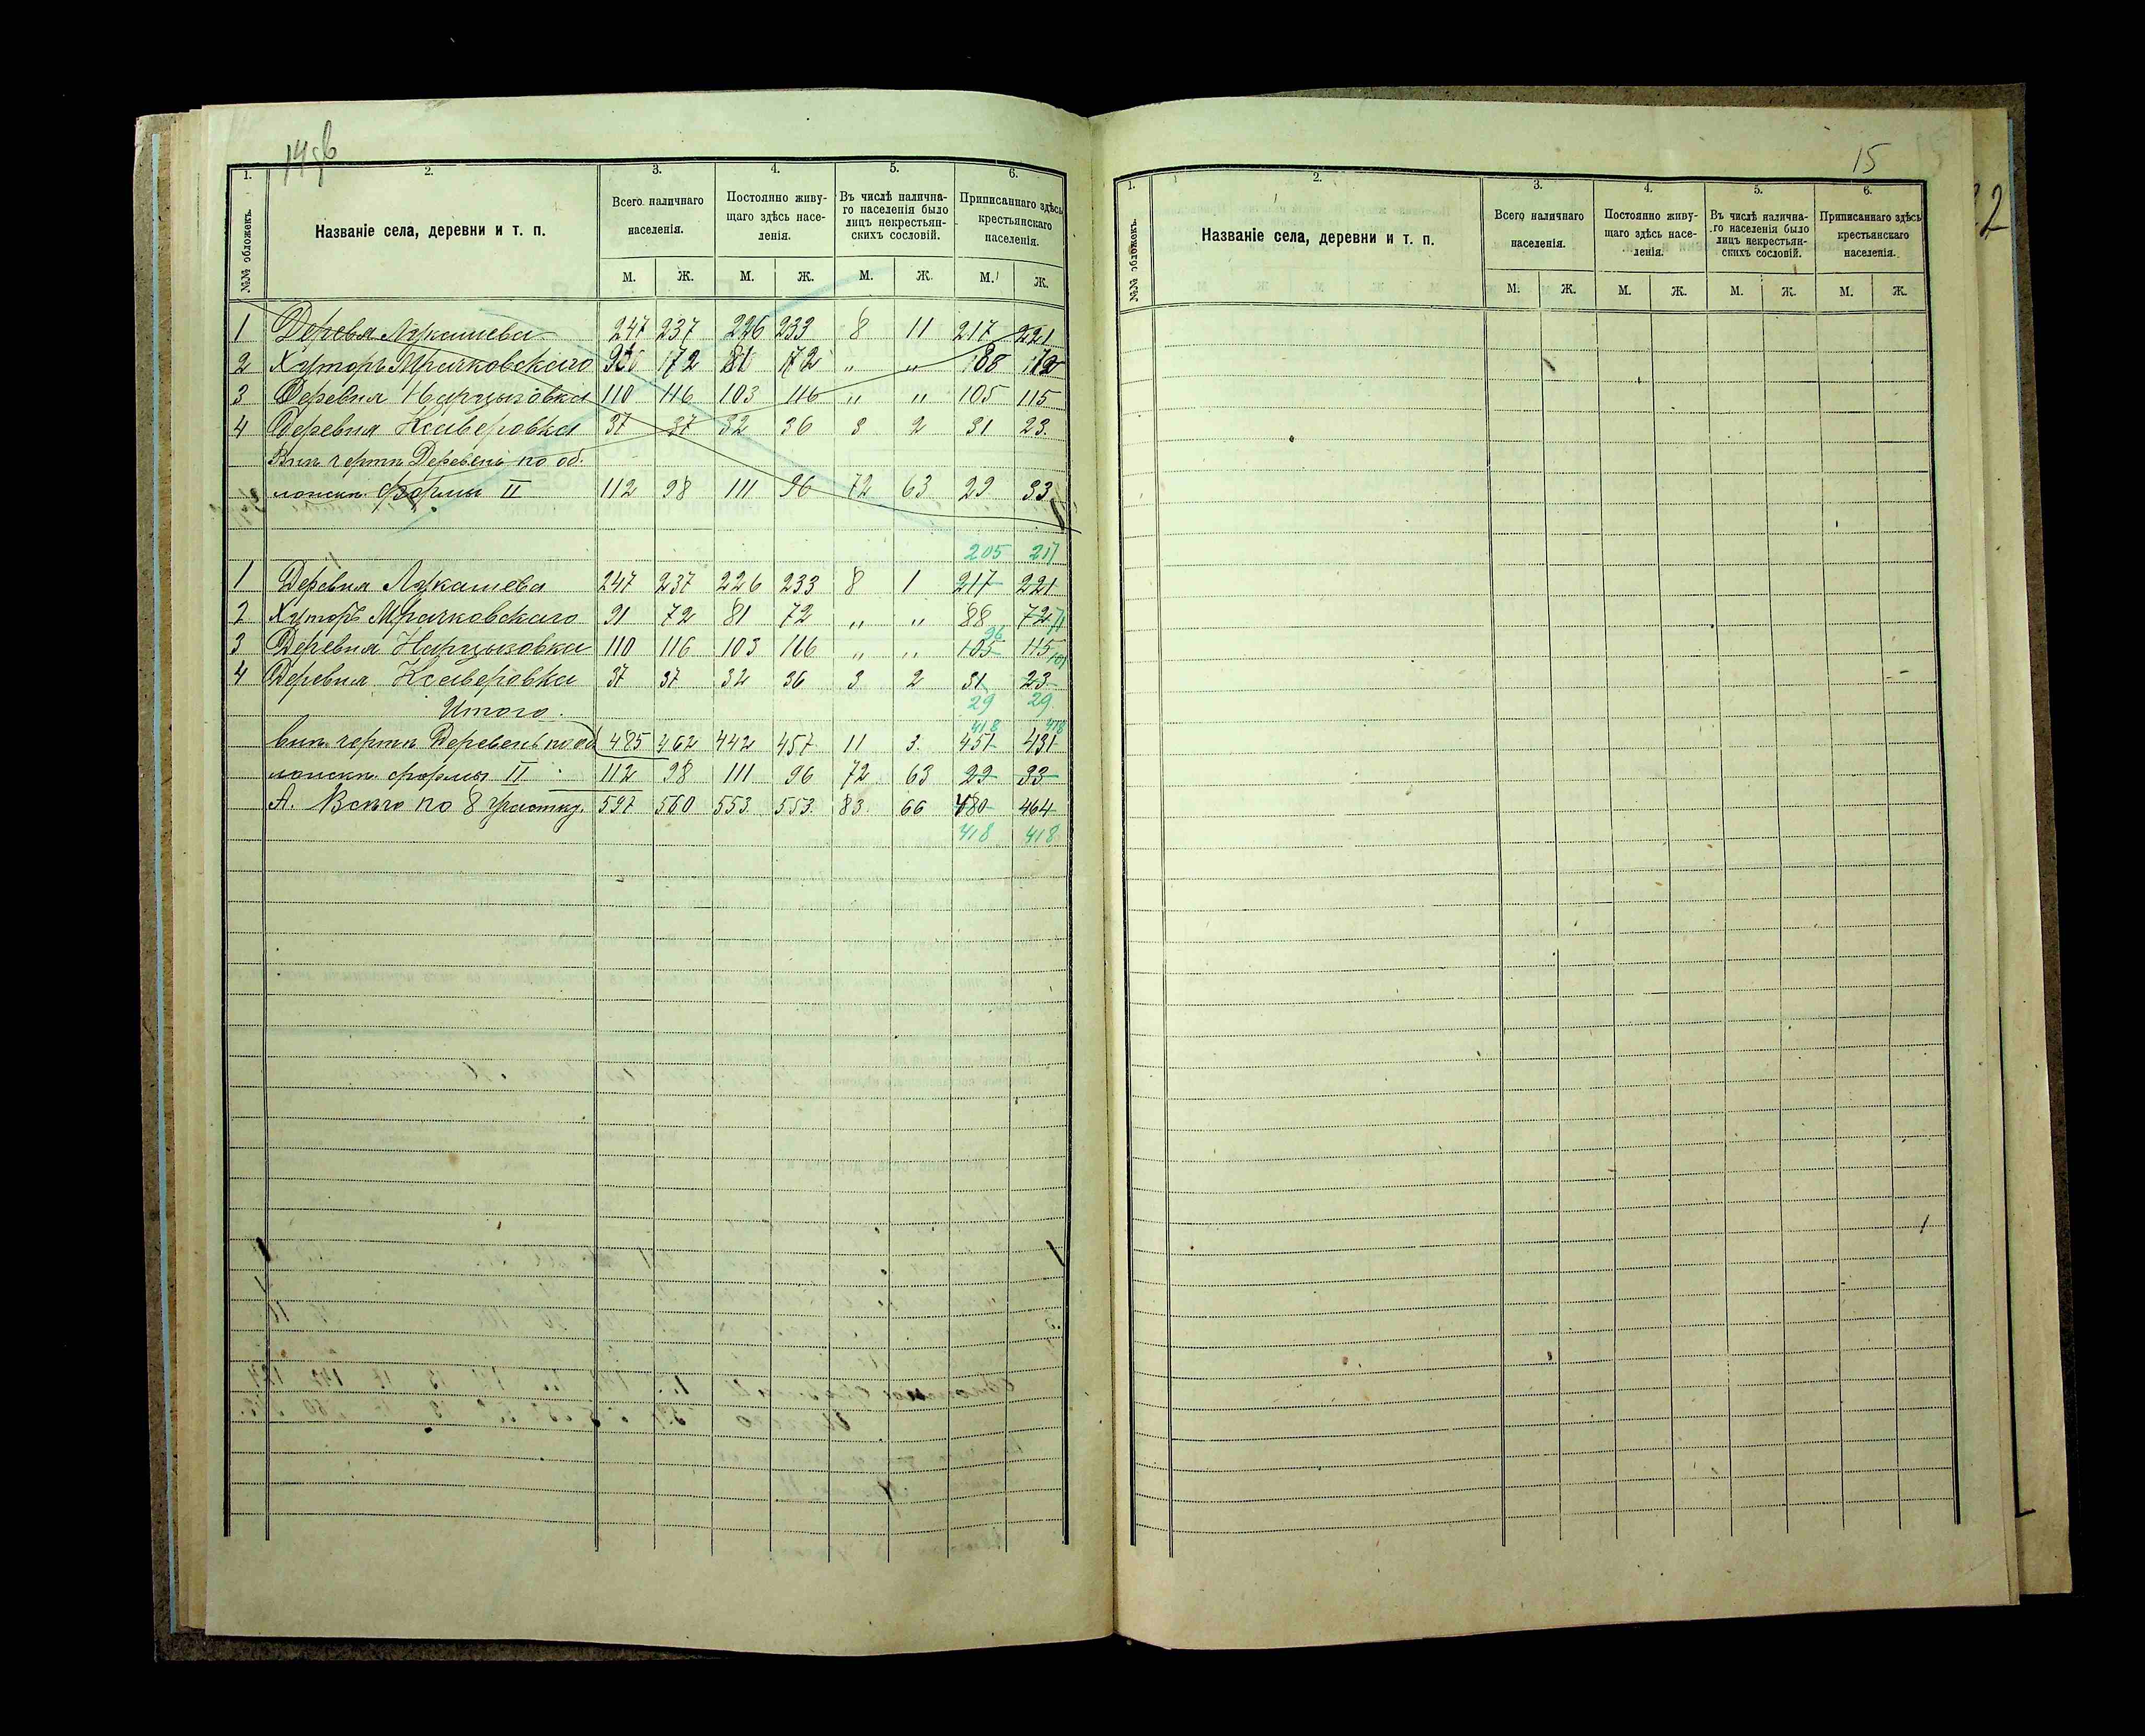 14об
1. 2. 3. 4. 5. 6.
№№ обложекъ.
Названіе села, деревни и т. п.
Всего наличнаго населенія.
Постоянно живу-
щаго здѣсь насе-
ленія.
Въ числѣ налична-
го населенія было
лицъ некрестьян-
скихъ сословій.
Приписаннаго здѣсь
крестьянскаго
населенія.
М. Ж. М. Ж. М. Ж. М. Ж.
1 Деревя Лукашева 247 237 226 233 8 11 217 221
2 Хуторъ Мрачковскаго 172 81 172 „ „ 88 172
3 Деревня Нарцызовка 110 116 103 116 „ „ 105 115
4 Деревня Ксаверовка 37 37 32 36 3 2 31 23.
Внѣ черты Деревень по об.
ложкѣ формы II 112 98 111 96 72 63 29 33
205 217
1 Деревня Лукашева 247 237 226 233 8 1 217 221
2 Хуторъ Мрачковскаго 91 72 81 72 „ „ 88 72 71
96
3 Деревня Нарцызовка 110 116 103 116 „ „ 105 115 101
4 Деревня Ксаверовка 37 37 32 36 3 2 31 23
Итого. 29 29
418 418
внѣ черты Деревень по об 485 462 442 457 11 3. 451 431
ложкѣ формы II 112 98 111 96 72 63 29 33
А. Всего по 8 участку. 597 560 553. 553. 83. 66 480 464
418 418
15
1. 2. 3. 4. 5. 6.
№№ обложекъ.
Названіе села, деревни и т. п.
Всего наличнаго
населенія.
Постоянно живу-
щаго здѣсь насе-
ленія.
Въ числѣ налична-
го населенія было
лицъ некрестьян-
скихъ сословій.
Приписаннаго здѣсь
крестьянскаго
населенія.
М. Ж. М. Ж. М. Ж. М. Ж.